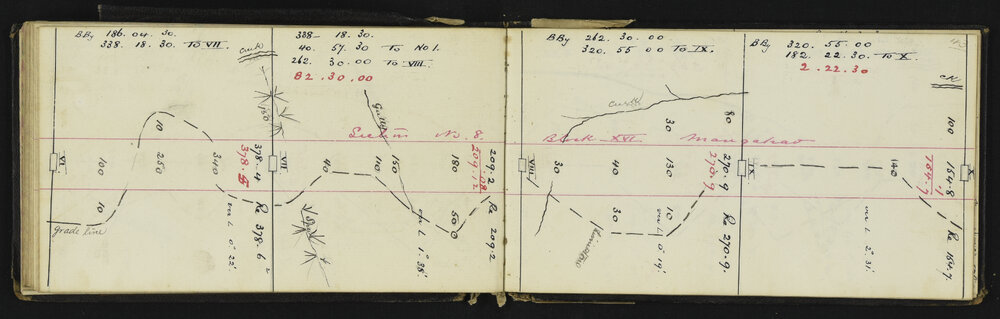 BBy 186. 04. 30.
338. 18. 30. To VII.
338- 18. 30.
40. 57. 30 To No 1.
262. 30. 00 To VIII.
82. 30. 00
BBy 262. 30. 00
320. 55 00 To IX.
BBy 320. 55. 00
182. 22. 30. To X.
2. 22. 30
Creek
Gully
Creek
Section No. 8.
Block XVI Mangahao
VI.
100
10
10
250
340
378.4
378.5
Ra 378.6
on L 0° 22'
grade line
150
VII
40
110
150
180
209.2
209.12
Ra 209.2
on L 1° 38'
50
Spur
VIII
30
40
30
130
30
10
80
270.9
270.9
Ra 270.9.
on L 0° 19'
IX
140
100
154.8
154.7
Ra 154.7.
on L 2° 31'
X